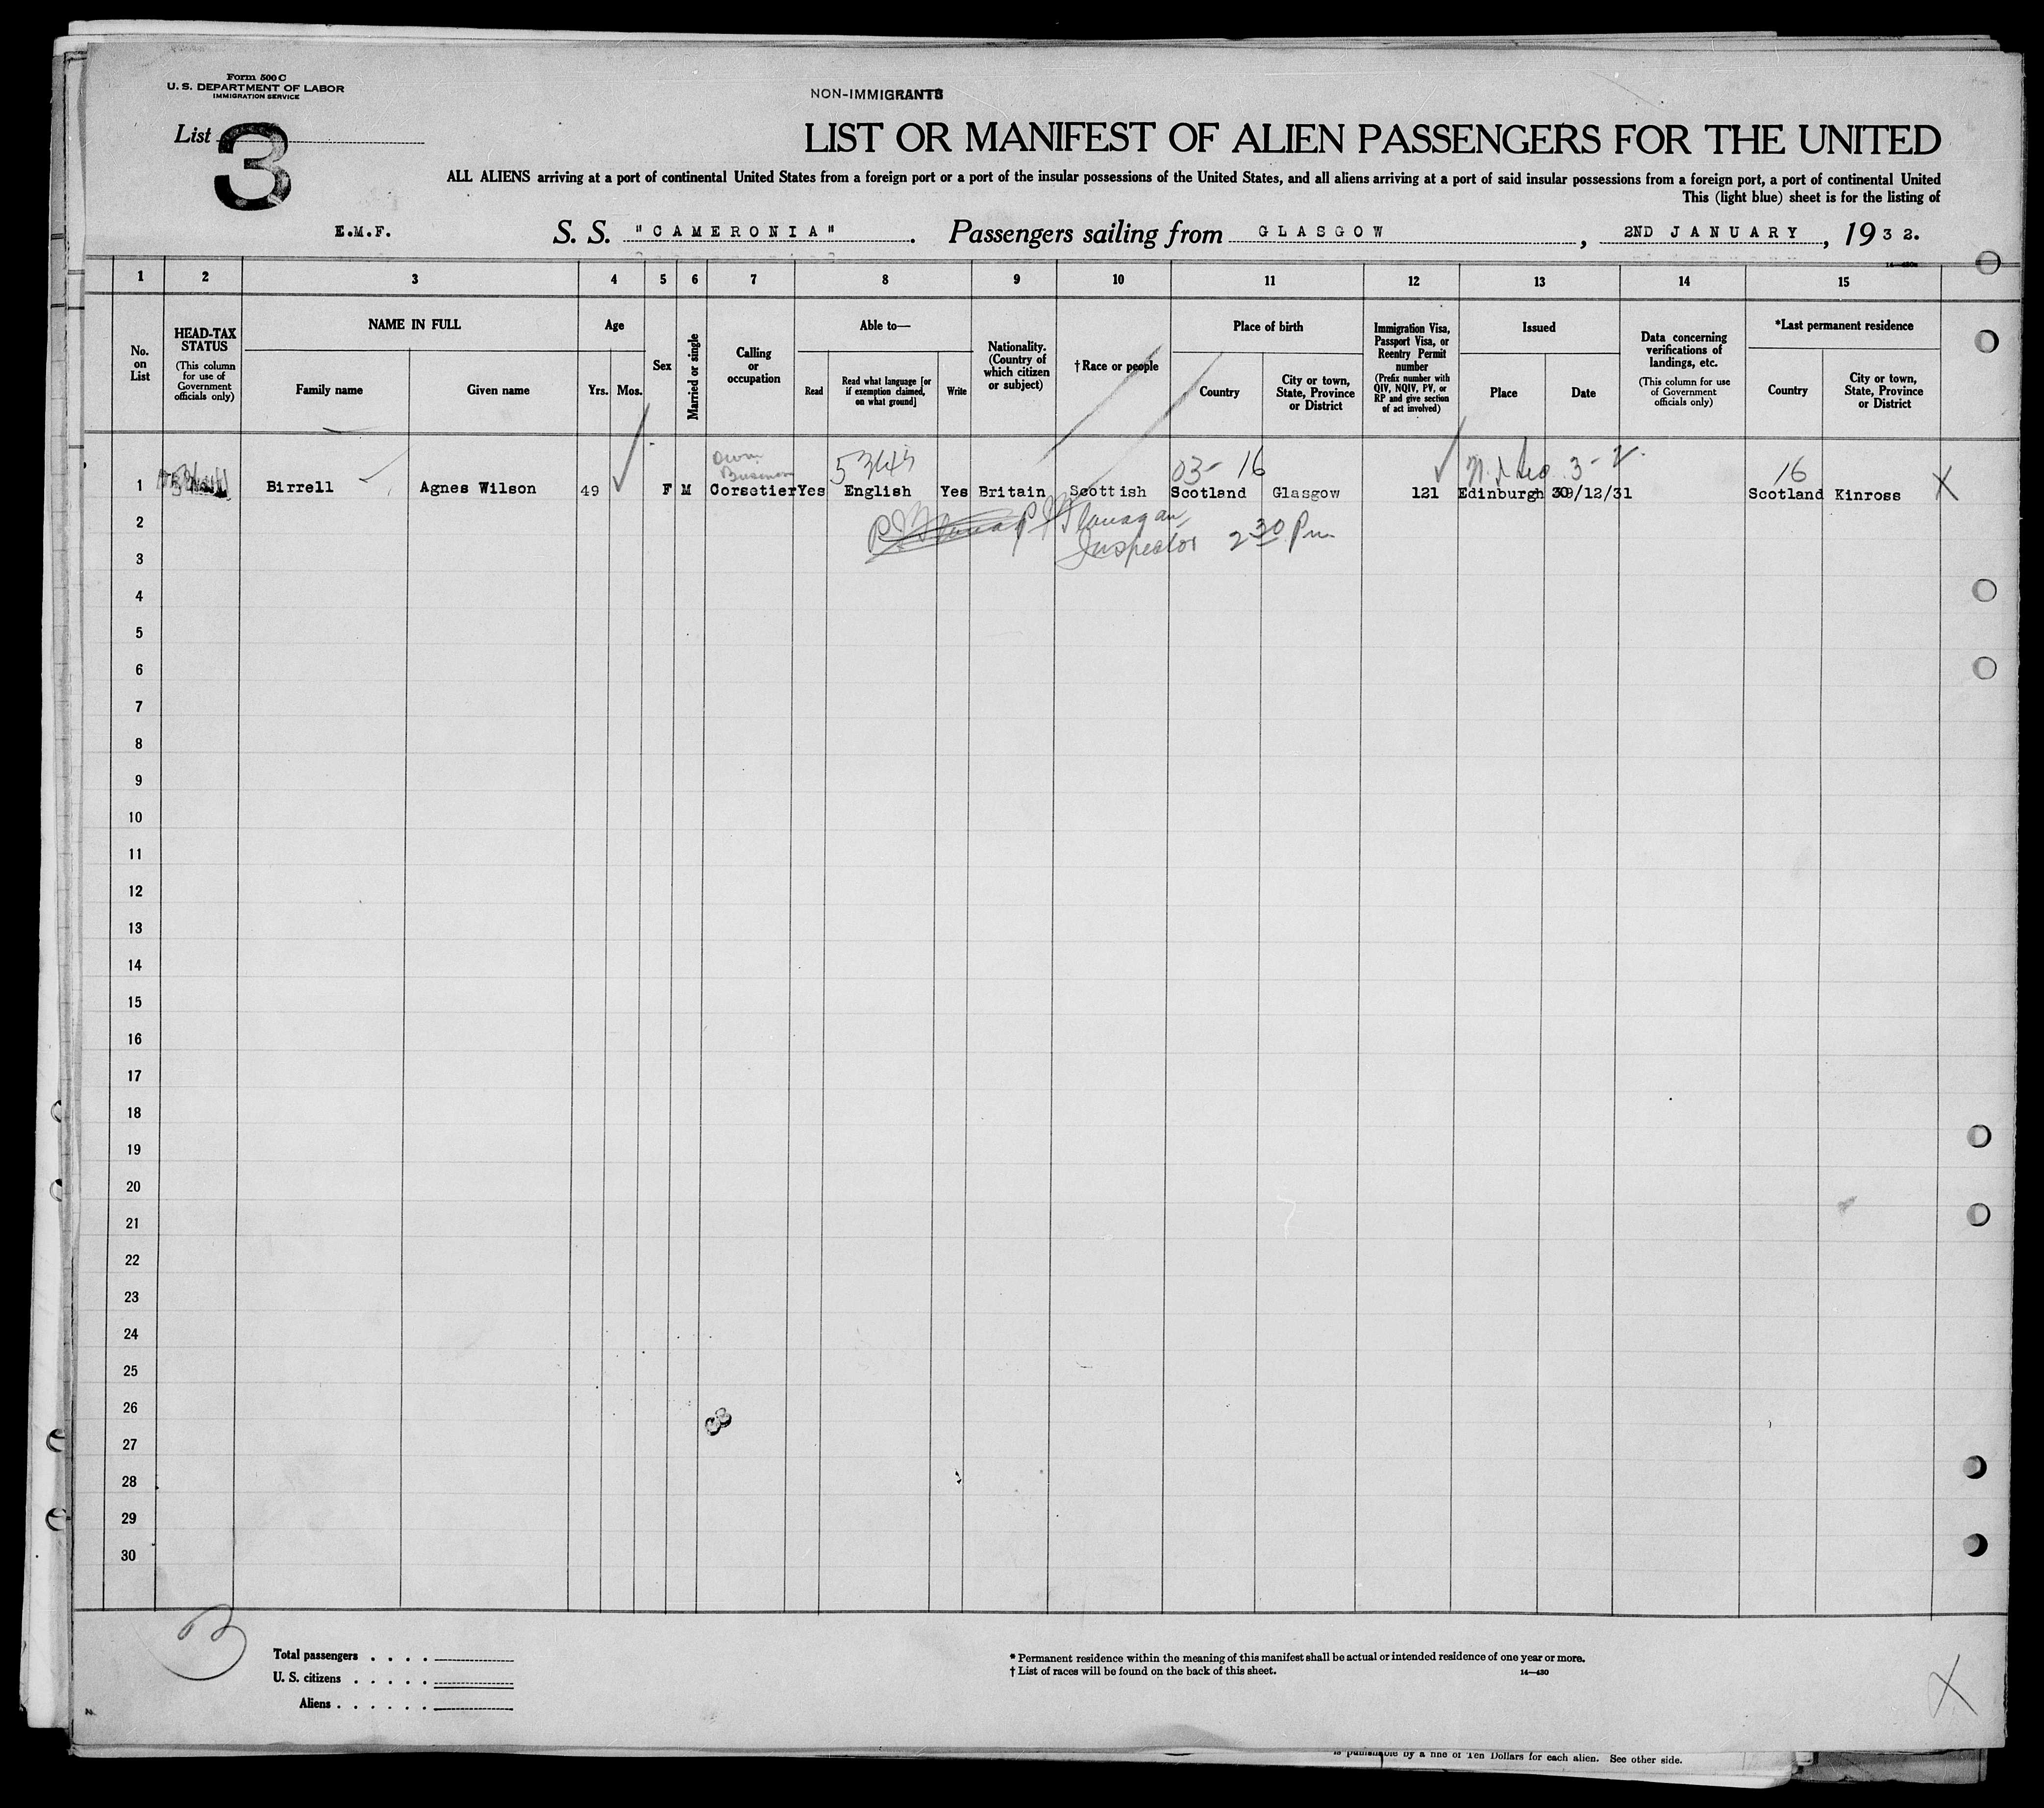 Form 500 C
U. S. DEPARTMENT OF LABOR
IMMIGRATION SERVICE
NON-IMMIGRANTS
List 3
LIST OR MANIFEST OF ALIEN PASSENGERS FOR THE UNITED
ALL ALIENS arriving at a port of continental United States from a foreign port or a port of the insular possessions of the United States, and all aliens arriving at a port of said insular possessions from a foreign port, a port of continental United
This (light blue) sheet is for the listing of
E.M.F. S. S. "CAMERONIA". Passengers sailing from GLASGOW, 2ND JANUARY, 1932.
1 2 3 4 5 6 7 8 9 10 11 12 13 14 15
No. on List
HEAD-TAX STATUS
(This column for use of Government officials only)
NAME IN FULL
Family name Given name
Age
Yrs. Mos.
Sex
Married or single
Calling or occupation
Able to—
Read
Read what language [or if exemption claimed, on what ground]
Write
Nationality. (Country of which citizen or subject)
† Race or people
Place of birth
Country
City or town, State, Province or District
Immigration Visa, Passport Visa, or Reentry Permit number
(Prefix number with QIV, NQIV, PV, or RP and give section of act involved)
Issued
Place Date
Data concerning verifications of landings, etc.
(This column for use of Government officials only)
*Last permanent residence
Country
City or town, State, Province or District
Own
Business
03- 16
3-2.
16
1 Birrell Agnes Wilson 49 F M Corsetier Yes English Yes Britain Scottish Scotland Glasgow 121 Edinburgh 30/12/31 Scotland Kinross X
P J Flanagan,
Inspector 2 30 Pm
2
3
4
5
6
7
8
9
10
11
12
13
14
15
16
17
18
19
20
21
22
23
24
25
26
27
28
29
30
Total passengers . . . .
U. S. citizens . . . . .
Aliens . . . . . .
* Permanent residence within the meaning of this manifest shall be actual or intended residence of one year or more.
† List of races will be found on the back of this sheet. 14—430
X
is punishable by a fine of Ten Dollars for each alien. See other side.